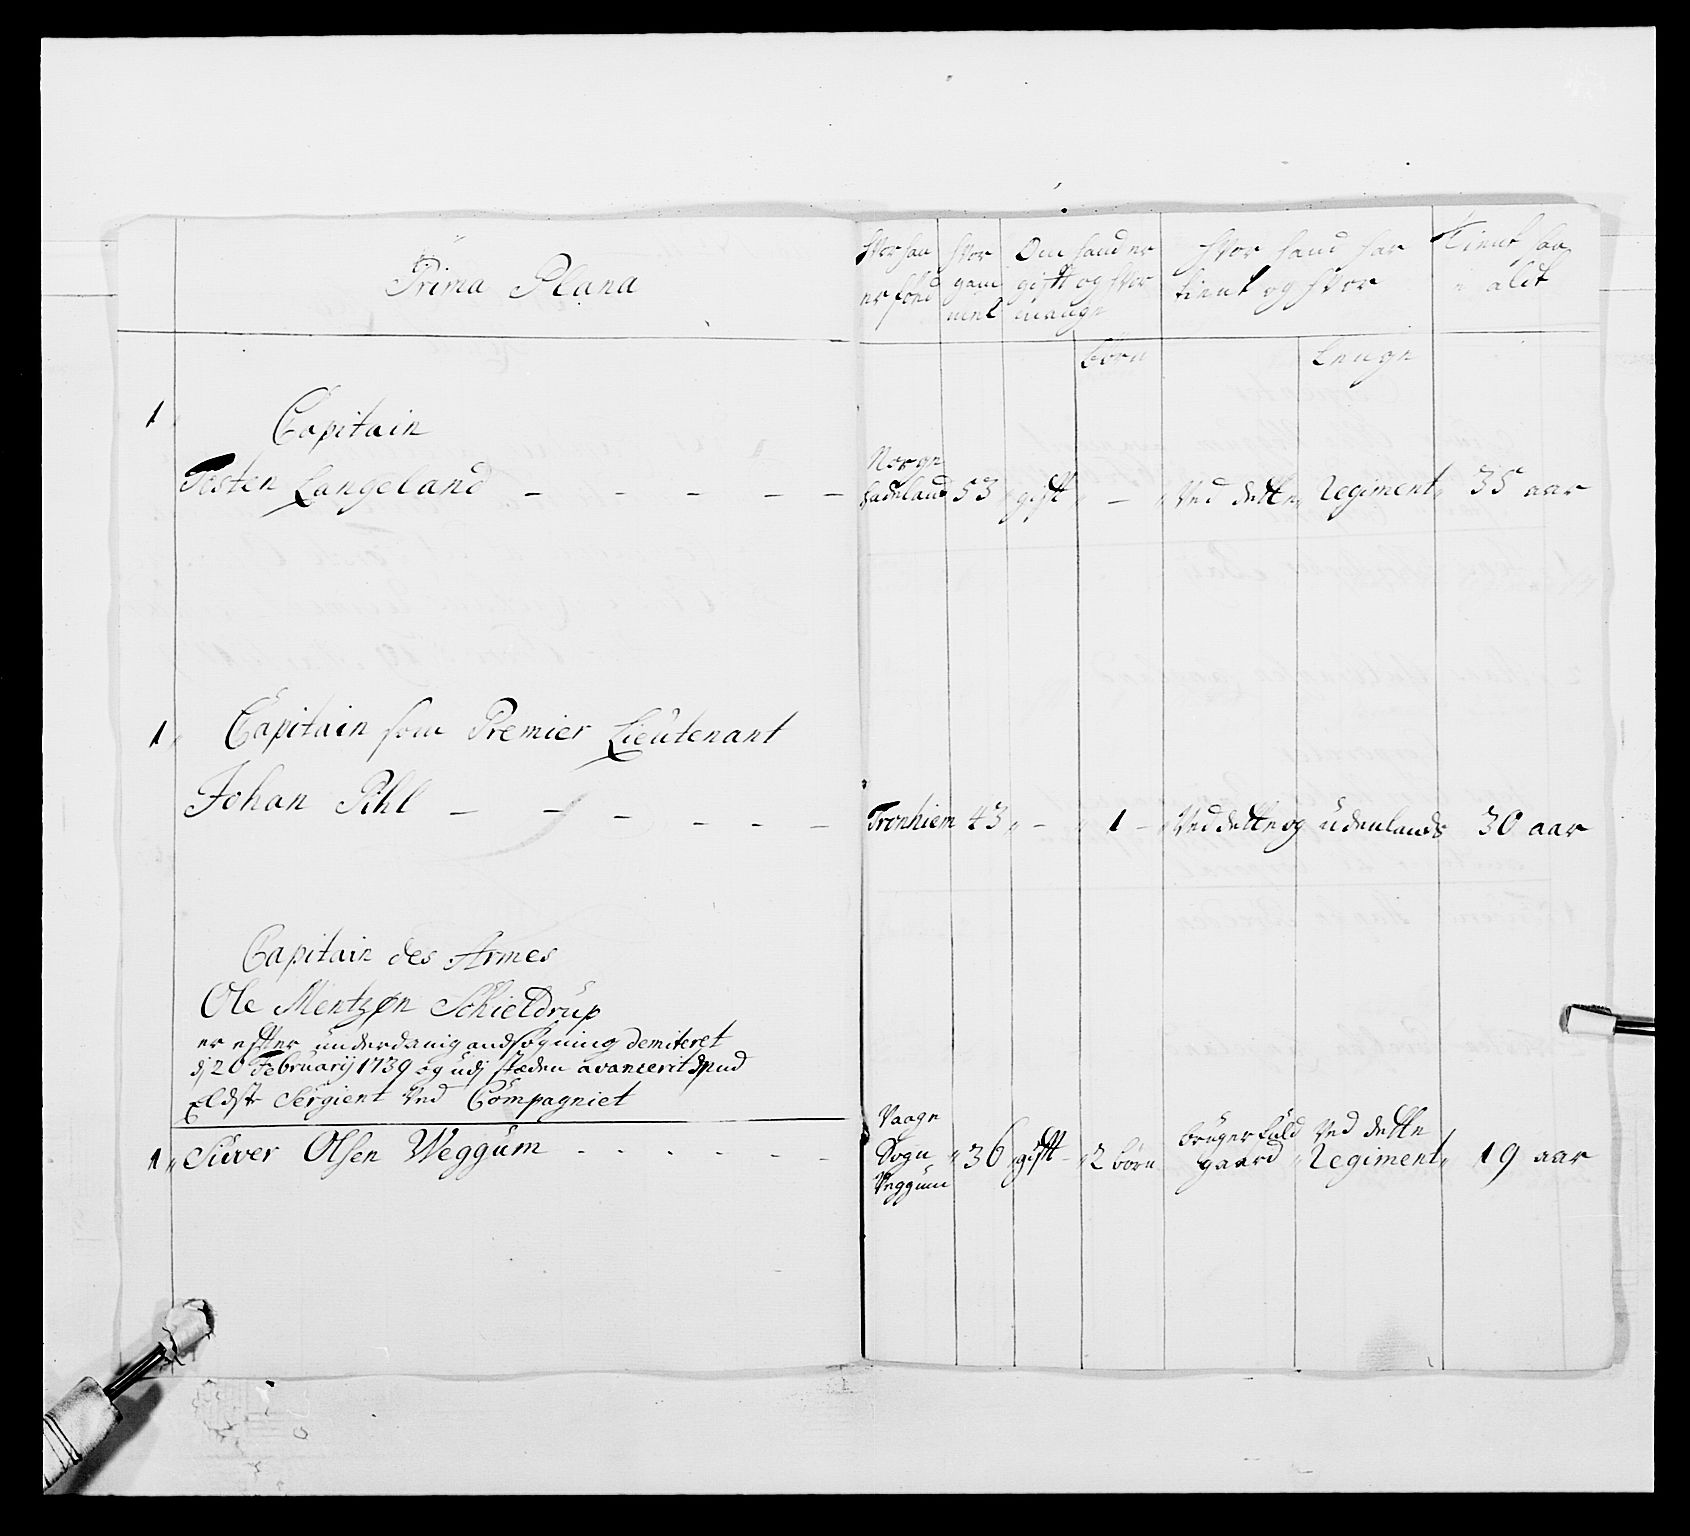 Prima Plana
Hvor han er föed
Hvor gam mel
Om hand er gift og hvor mange
Börn
Hvor hand har tient og hvor
Lenge
Tient han alt
1 Capitain
Tosten Langeland - - - - - Norge Hadeland 53 gift - Ved dette Regiment 35 aar
1 Capitain som Premier Lieutenant
Johan Pihl - - - - - - Tronhiem 43 - 1 - Ved dette og udenlands 30 aar
Capitain des Armes
Ole Mentzøn Schieldrup
er efter underdanig andsøgning demiteret
dj 20 Februarij 1739 og udj stæden avancerit
Eldste Sergient Ved Compagniet
1 Siuver Olsen Weggum - - - - - - Vaage Sogn Veggum 36 gift 2 börn bruger fuld gaard Ved dette Regiment 19 aar